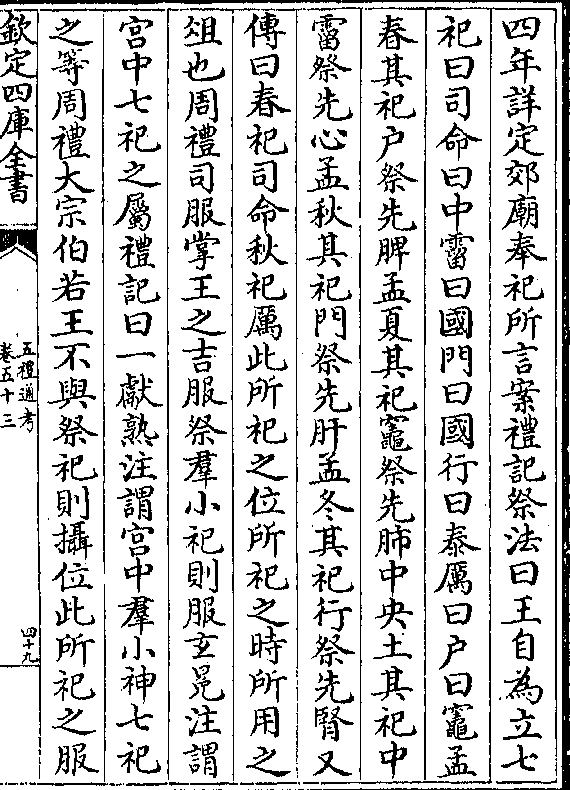 四年詳定郊廟奉祀所言案禮記祭法曰王自為立七
祀曰司命曰中霤曰國門曰國行曰泰厲曰户曰竈孟
春其祀户祭先脾孟夏其祀竈祭先肺中央土其祀中
霤祭先心孟秋其祀門祭先肝孟冬其祀行祭先腎又
傳曰春祀司命秋祀厲此所祀之位所祀之時所用之
俎也周禮司服掌王之吉服祭羣小祀則服玄冕注謂
宫中七祀之屬禮記曰一獻熟注謂宫中羣小神七祀
之等周禮大宗伯若王不與祭祀則攝位此所祀之服
欽定四庫全書
五禮通考
卷五十三
四十九